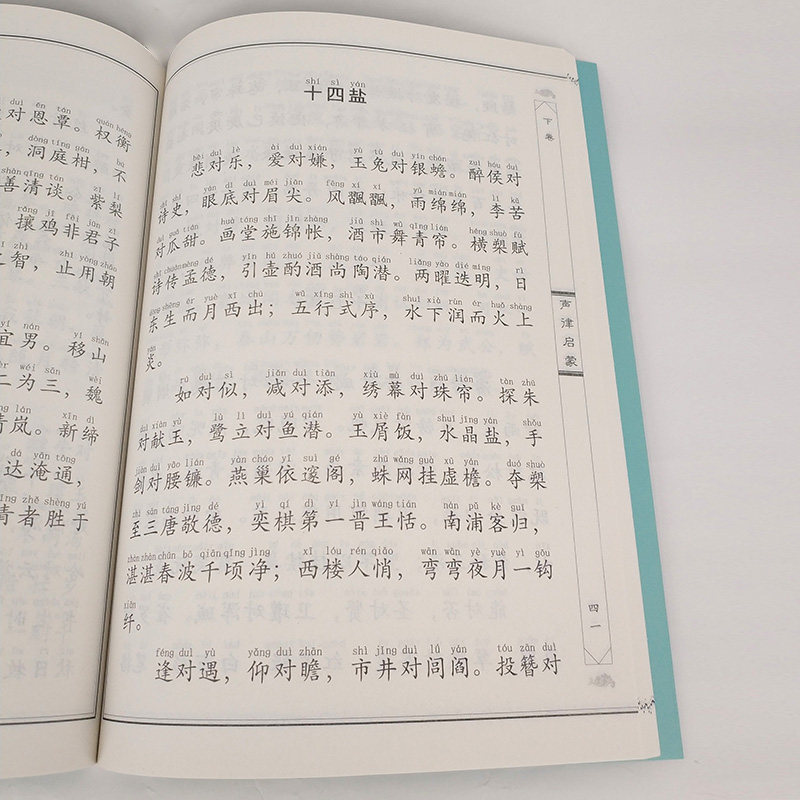 duì ēn tán quán héng
对恩覃。权衡
dòng tíng gān bù
，洞庭柑，不
shàn qīng tán zǐ lí
善清谈。紫梨
rǎng jī fēi jūn zǐ
攘鸡非君子
zhì zhǐ yòng zhāo
之智，止用朝
yí nán yí shān
宜男。移山
wéi sān wèi
二为三，魏
lán xīn dì
青岚。新缔
dá yān tōng
达淹通，
qīng zhě shèng yú
青者胜于
shí sì yán
十四盐
bēi duì lè ài duì xián yù tù duì yín chán zuì hóu duì
悲对乐，爱对嫌，玉兔对银蟾。醉侯对
shī shǐ yǎn dǐ duì méi jiān fēng xí xí yǔ mián mián lǐ kǔ
诗史，眼底对眉尖。风飁飁，雨绵绵，李苦
duì guā tián huà táng shī jǐn zhàng jiǔ shì wǔ qīng lián héng shuò fù
对瓜甜。画堂施锦帐，酒市舞青帘。横槊赋
shī chuán mèng dé yǐn hú zhuó jiǔ shàng táo qián liǎng yào dié míng rì
诗传孟德，引壶酌酒尚陶潜。两曜迭明，日
dōng shēng ér yuè xī chū wǔ xíng shì xù shuǐ xià rùn ér huǒ shàng
东生而月西出；五行式序，水下润而火上
yán
炎。
rú duì sì jiǎn duì tiān xiù mù duì zhū lián tàn zhū
如对似，减对添，绣幕对珠帘。探朱
duì xiàn yù lù lì duì yú qián yù xiè fàn shuǐ jīng yán shǒu
对献玉，鹭立对鱼潜。玉屑饭，水晶盐，手
jiàn duì yāo lián yàn cháo yī suì gé zhū wǎng guà xū yán duó shuò
剑对腰镰。燕巢依邃阁，蛛网挂虚檐。夺槊
zhì sān táng jìng dé yì qí dì yī jìn wáng tián nán pǔ kè guī
至三唐敬德，奕棋第一晋王恬。南浦客归，
zhàn zhàn chūn bō qiān qǐng jìng xī lóu rén qiǎo wān wān yè yuè yì gōu
湛湛春波千顷净；西楼人悄，弯弯夜月一钩
xiān
纤。
féng duì yù yǎng duì zhān shì jǐng duì lǘ yán tóu zān duì
逢对遇，仰对瞻，市井对闾阎。投簪对
下卷
声律启蒙
四一